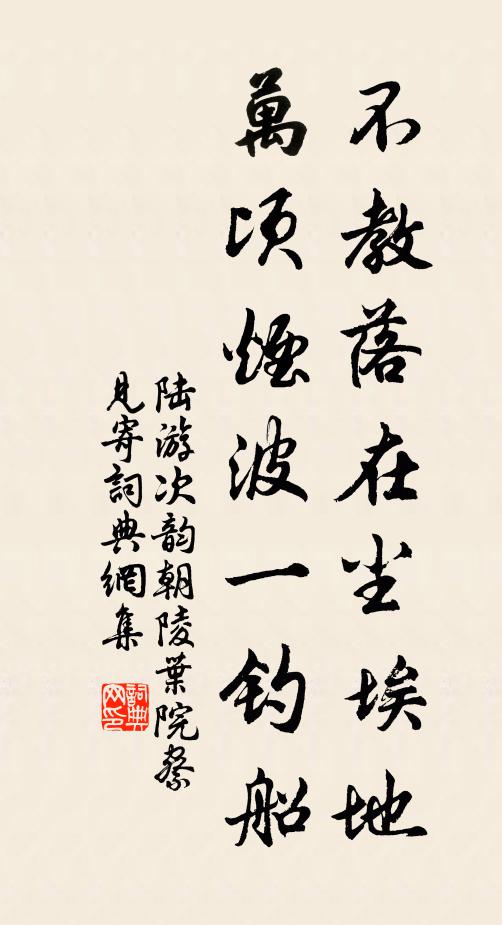 不教落在尘埃地
萬顷煙波一钓船
陆游次韵朝陵葉院察
見寄詞典網集
詞典
网印